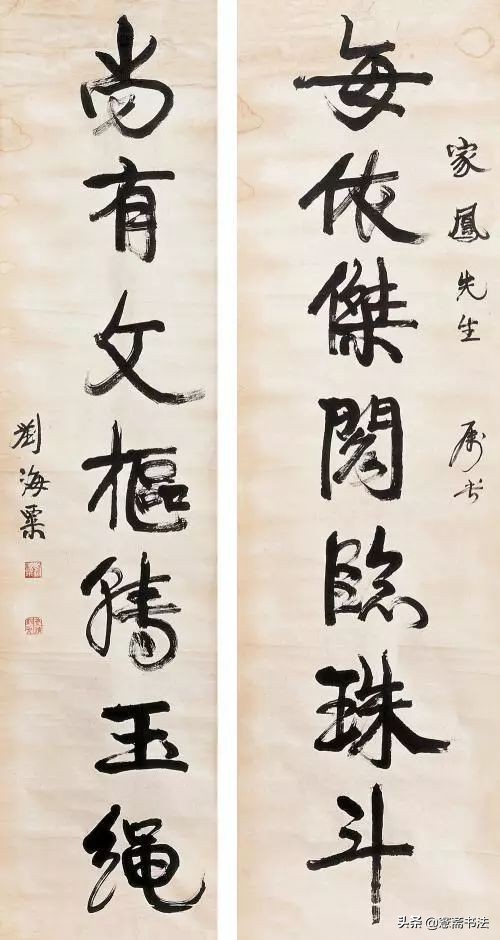 家鳳先生 属书
每依傑閣臨珠斗
尚有文樞騰玉繩
劉海粟
头条@愙斋书法